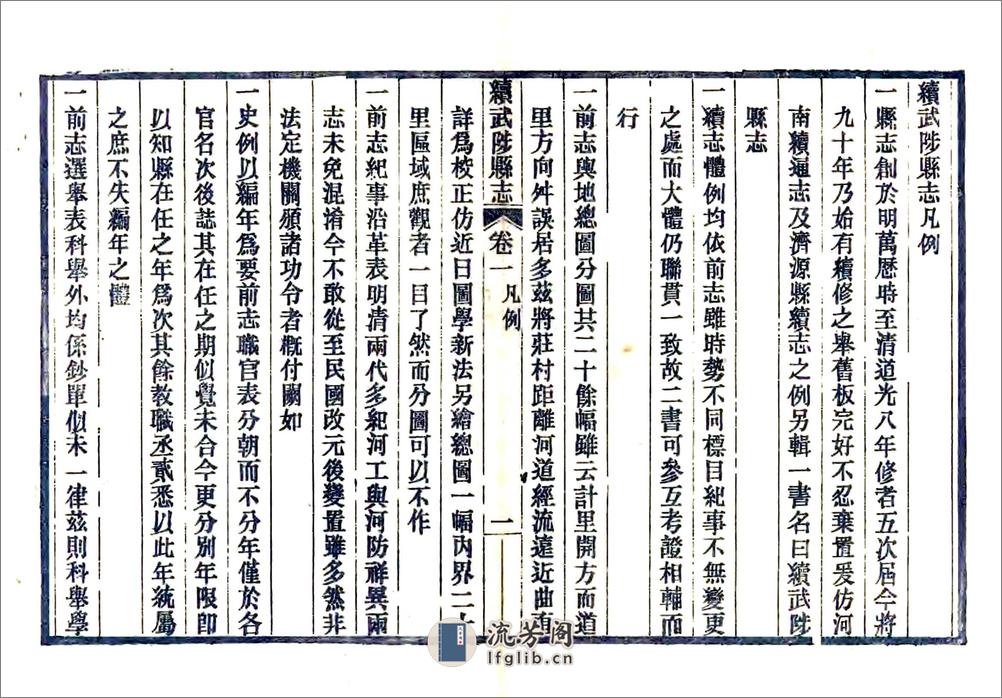 續武陟縣志凡例
一縣志創於明萬厯時至清道光八年修者五次届今將
九十年乃始有續修之舉舊板完好不忍棄置爰仿河
南續通志及濟源縣續志之例另輯一書名曰續武陟
縣志
一續志體例均依前志雖時勢不同標目紀事不無變更
之處而大體仍聯貫一致故二書可參互考證相輔而
行
一前志輿地總圖分圖其二十餘幅雖云計里開方而道
里方向舛誤居多茲將莊村距離河道經流遠近曲直
續武陟縣志 卷一 凡例 一
詳爲校正仿近日圖學新法另繪總圖一幅內界二十
里區域庶觀者一目了然而分圖可以不作
一前志紀事沿革表明清兩代多紀河工與河防祥異兩
志未免混淆今不敢從至民國改元後變置雖多然非
法定機關頒諸功令者槪付闕如
一史例以編年爲要前志職官表分朝而不分年僅於各
官名次後誌其在任之期似覺未合今更分別年限即
以知縣在任之年爲次其餘教職丞貳悉以此年統屬
之庶不失編年之體
一前志選舉表科舉外均係鈔單似未一律茲則科舉學
流芳阁
lfglib.cn